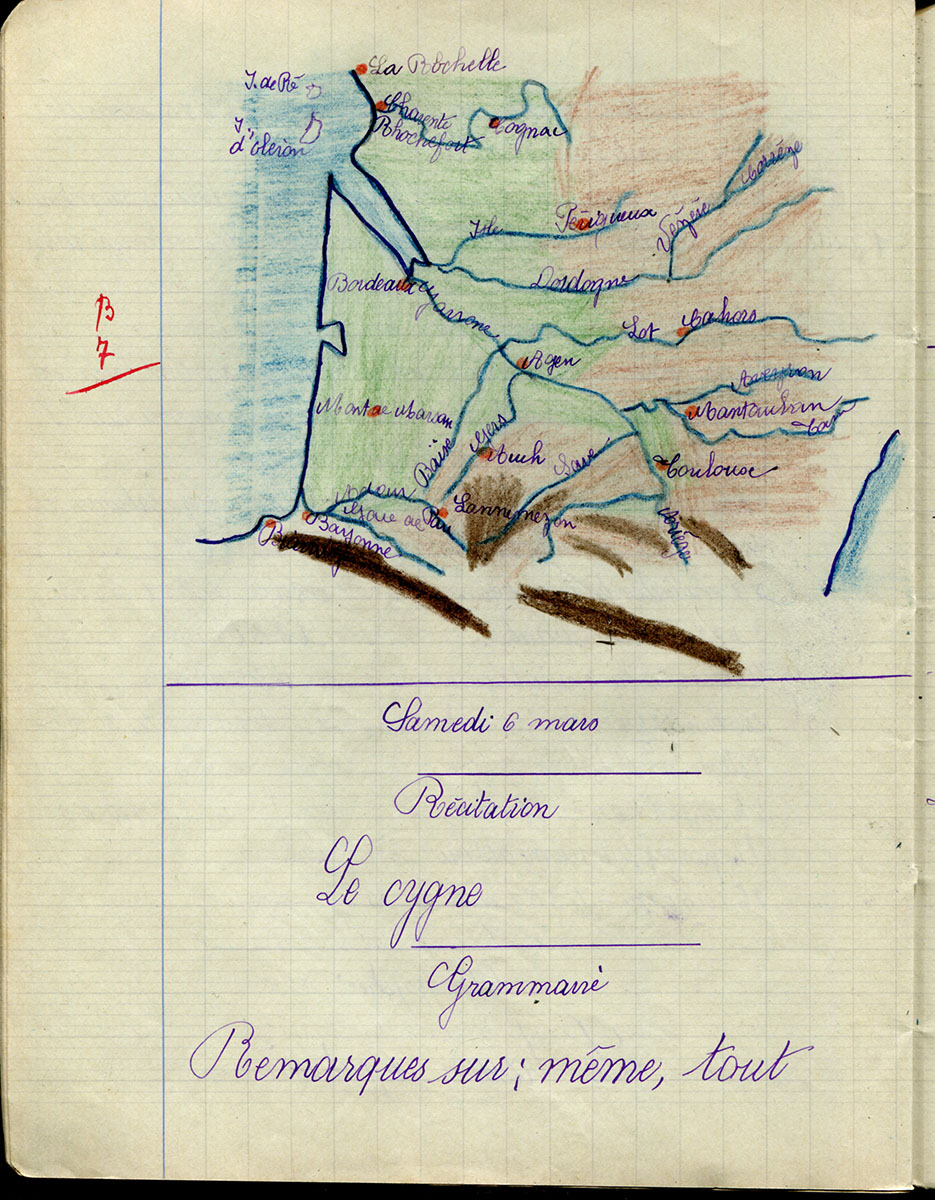 La Rochelle
I. de Ré
Charente
Rhochefort
Cognac
I.
d'óleron
Corrèze
Isle
Périgueux
Vézère
Bordeaux
Garonne
Dordogne
Lot
Cahors
Agen
Aveyron
Mont de Marsan
Montauban
Tarn
Baïse
Gers
Auch
Save
Toulouse
Adour
Gave de Pau
Lannemezan
Ariège
Biarritz
Bayonne
B
7
Samedi 6 mars
Récitation
Le cygne
Grammaire
Remarques sur ; même, tout